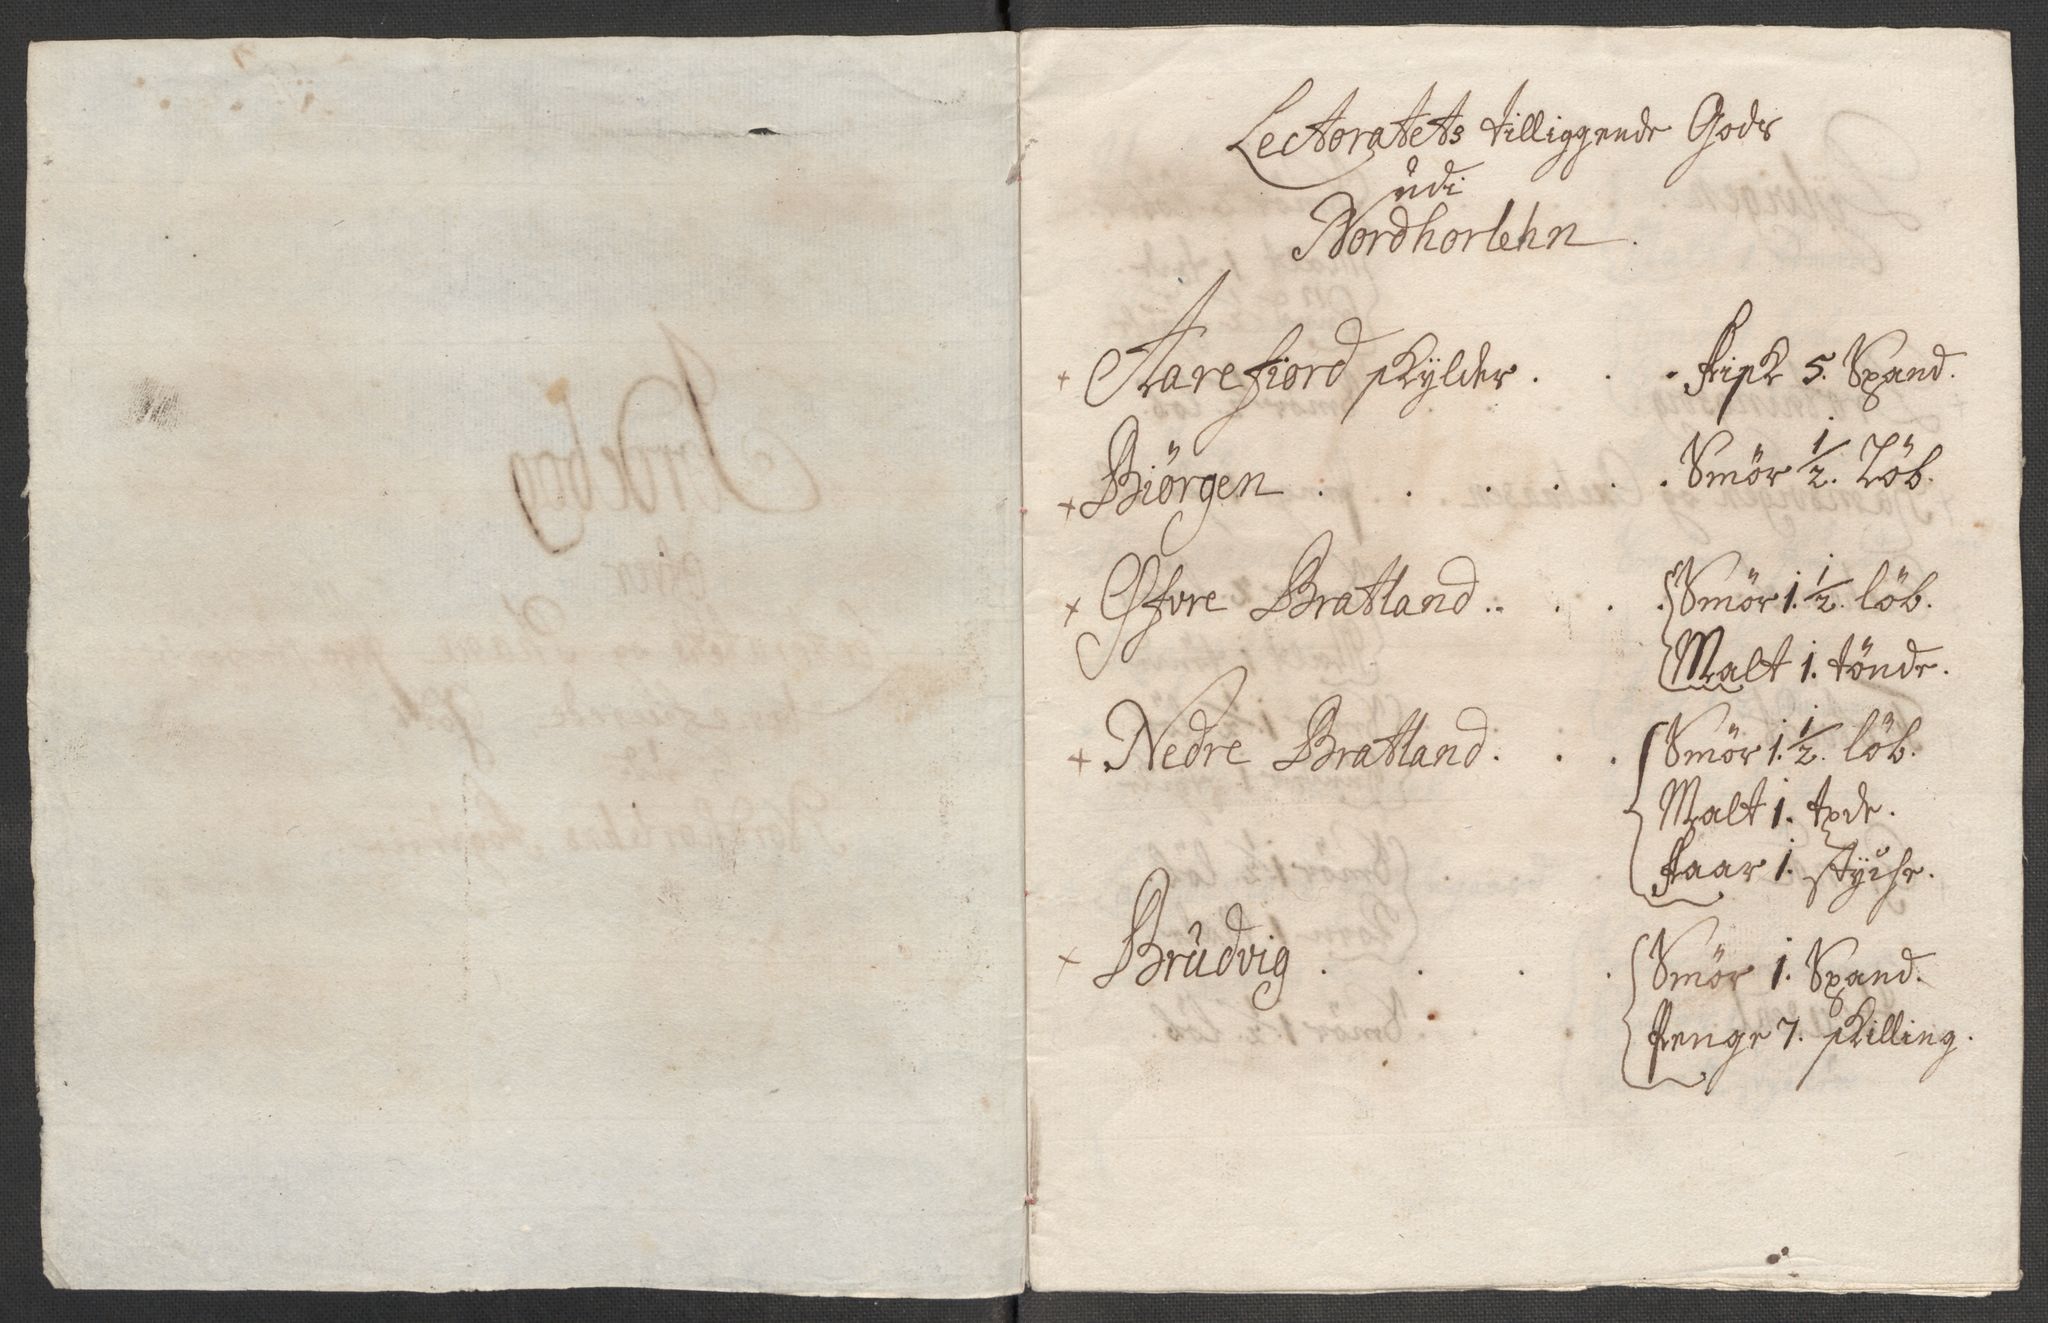 Lectoratets tilliggende Gods
udi
Nordhorlehn.
+ Aarefiord skylder . . . Fisk 5. Spand.
+ Biörgen . . . . . . Smör 1/2. Löb.
+ Øfvre Bratland . . . . Smör 1. 1/2. löb.
Malt 1. tönde.
+ Nedre Bratland . . . Smör 1. 1/2. löb.
Malt 1. tøde.
Faar 1. stÿche.
+ Brudvig . . . . Smör 1. Spand.
Penge 7. skilling.